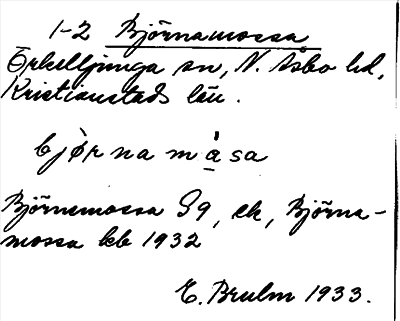 1-2 Björnamossa
Örkelljunga sn, N. Åsbo hd,
Kristianstads län.
bjø̀rnamå̀sa
Björnemossa Sg, ek, Björna-
mossa kb 1932
E. Brulm 1933.